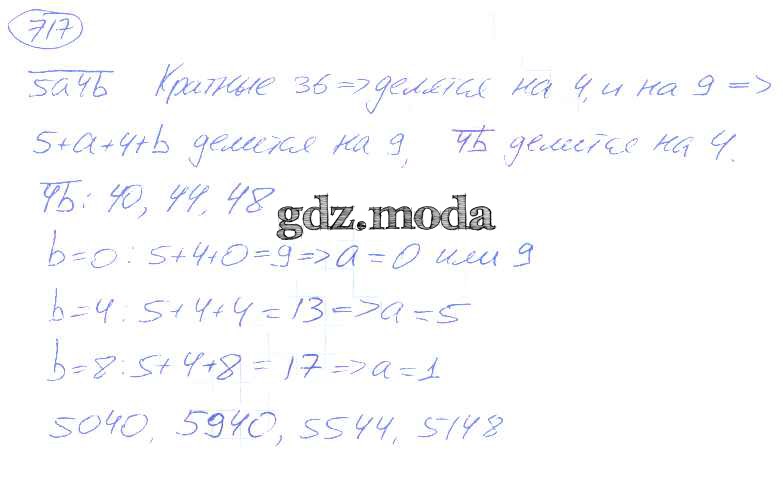 717
5a4b Кратные 36 => делятся на 4, и на 9 =>
5+a+4+b делится на 9, 4b делится на 4.
4b: 40, 44, 48
gdz.moda
b=0: 5+4+0=9 => a=0 или 9
b=4: 5+4+4=13 => a=5
b=8: 5+4+8=17 => a=1
5040, 5940, 5544, 5148